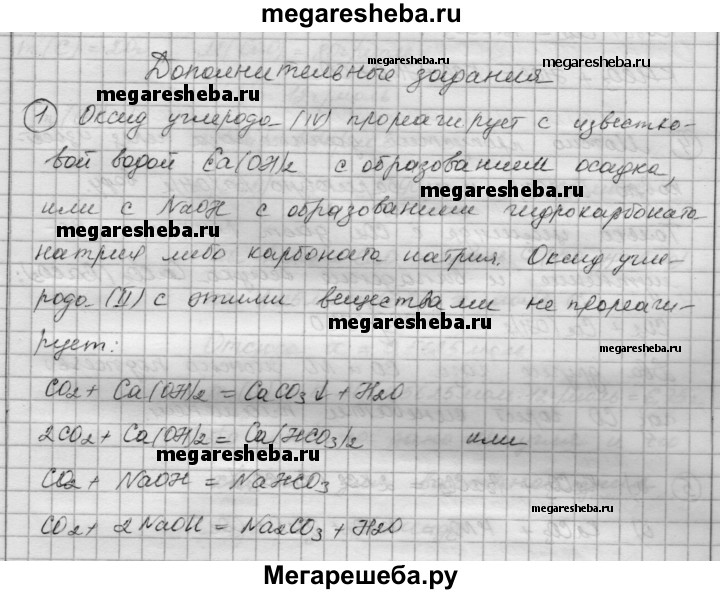 megaresheba.ru
Дополнительные задания
megaresheba.ru
megaresheba.ru
megaresheba.ru
① Оксид углерода (IV) прореагирует с известко-
вой водой Ca(OH)2 с образованием осадка,
megaresheba.ru
или с NaOH с образованием гидрокарбоната
megaresheba.ru
натрия либо карбоната натрия. Оксид угле-
рода (II) с этими веществами не прореаги-
megaresheba.ru
рует:
megaresheba.ru
CO2 + Ca(OH)2 = CaCO3↓ + H2O
2CO2 + Ca(OH)2 = Ca(HCO3)2 или
megaresheba.ru
CO2 + NaOH = NaHCO3
CO2 + 2NaOH = Na2CO3 + H2O
megaresheba.ru
Мегарешеба.ру